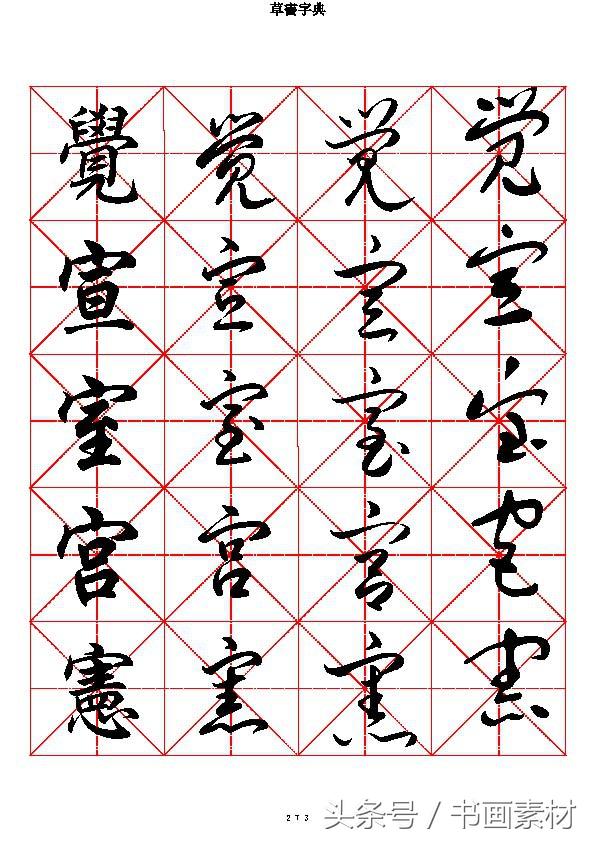 草書字典
覺 覺 覺 覺
宣 宣 宣 宣
室 室 室 室
宮 宮 宮 宮
憲 憲 憲 憲
273
头条号 / 书画素材